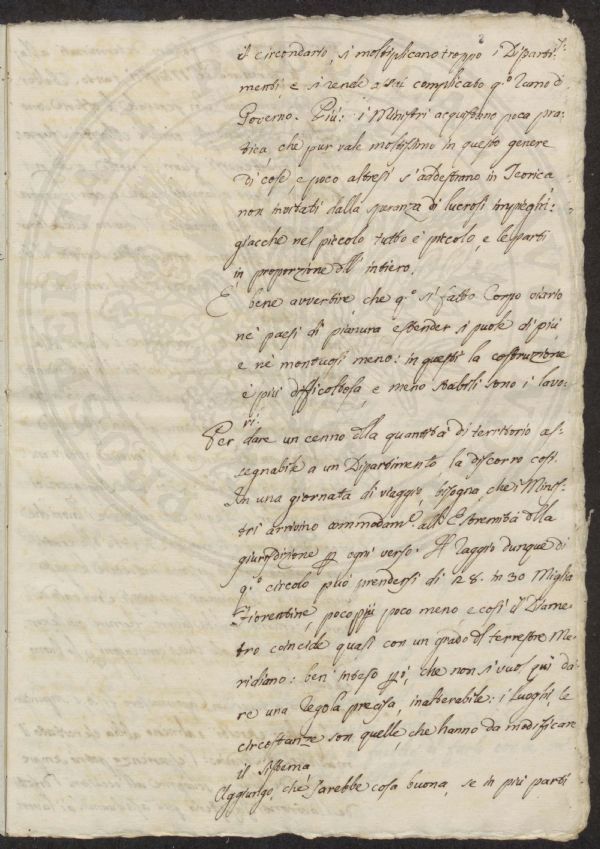 il circondario, si moltiplicano troppo i Diparti-
menti, e si rende assai complicato q.º Ramo di
Governo. Più: i Ministri acquistano poca pra-
tica, che pur vale moltissimo in questo genere
di cose, e poco altresì s'addestrano in Teorica
non invitati dalla speranza di lucrosi impieghi:
giacche nel piccolo tutto è piccolo, e le parti
in proporzione dll' intiero.
È bene avvertire che q.º sì fatto Corpo viario
ne' paesi di pianura estender si puole di più
e ne' montuosi meno: in questi la costruzione
è più difficoltosa, e meno stabili sono i lavo-
ri.
Per dare un cenno dlla quantità di territorio as-
segnabile a un Dipartimento, la discorro così.
In una giornata di viaggio, bisogna, che i Minis-
tri arrivino commodam.e all' Estremità dlla
giurisdizione p ogni verso. Il Raggio dunque di
q.º circolo può prendersi di 28. in 30 Miglia
Fiorentine, poco più poco meno e così il Diame-
tro coincide quasi con un grado dl terrestre Me-
ridiano: ben' inteso però, che non si vuol qui da-
re una regola precisa, inalterabile: i luoghi, le
circostanze son quelle, che hanno da modificare
il sistema
Aggiungo, che sarebbe cosa buona, se in più parti